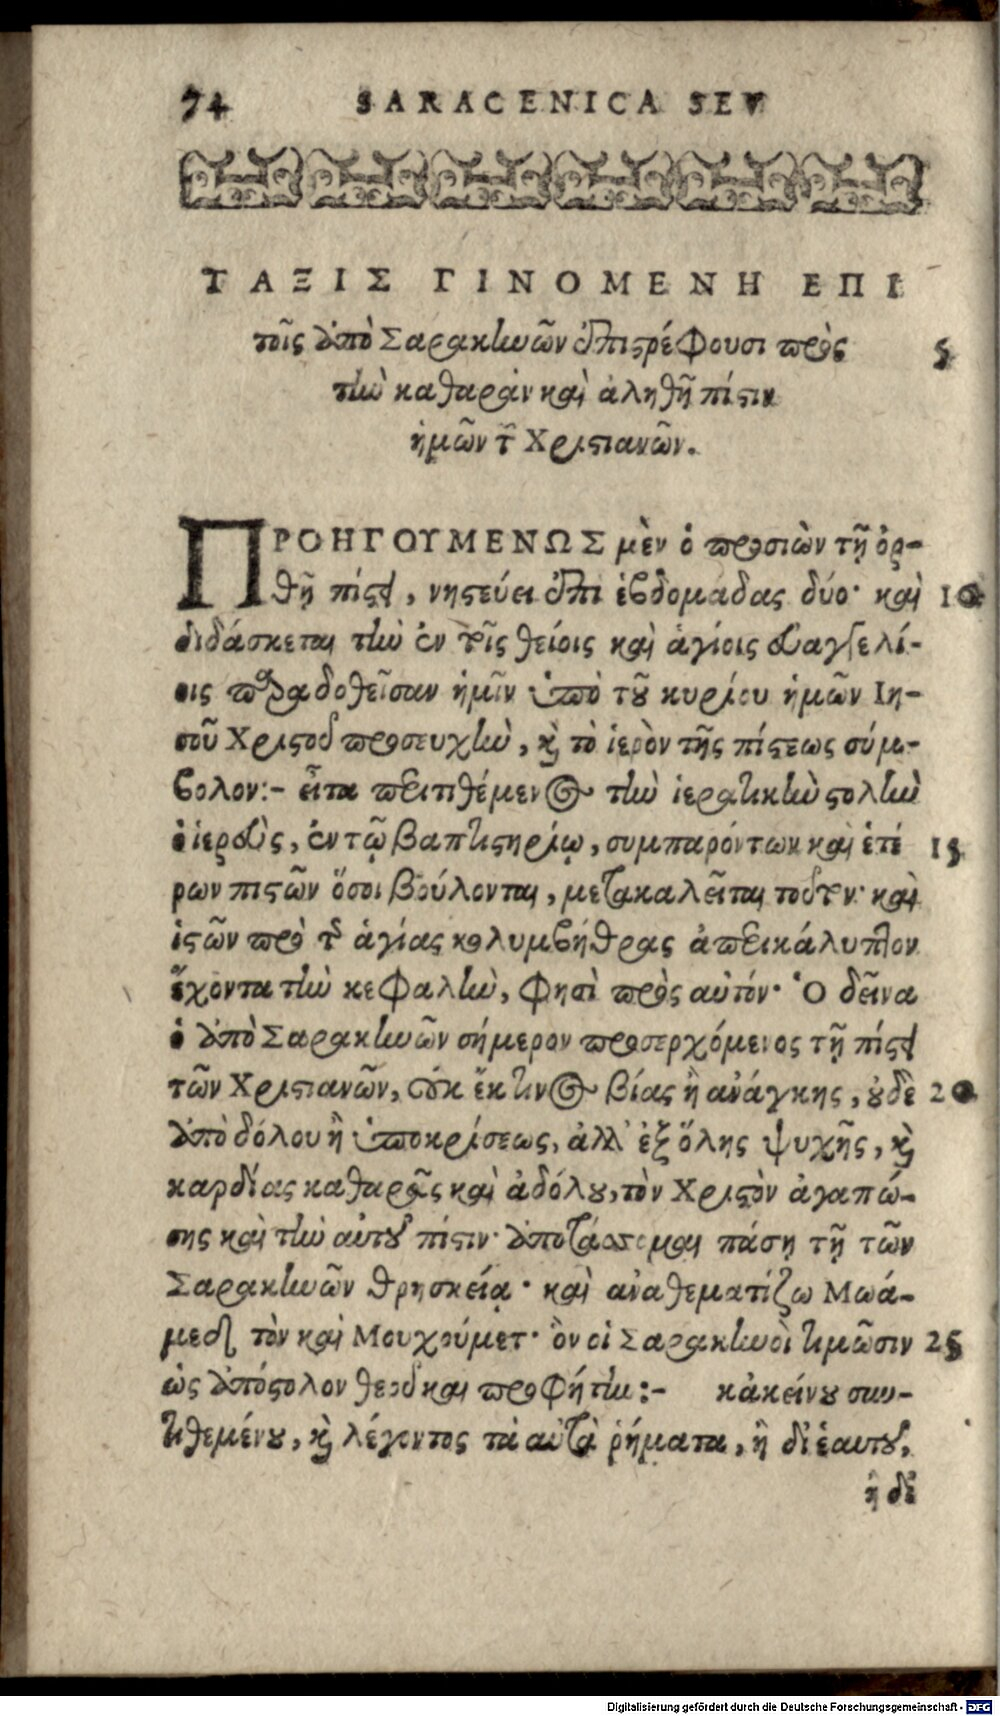 74 SARACENICA SEV
ΤΑΞΙΣ ΓΙΝΟΜΕΝΗ ΕΠΙ
τοῖς ἀπὸ Σαρακηνῶν ἐπιστρέφουσι πρὸς 5
τὴν καθαρὰν καὶ ἀληθῆ πίστιν
ἡμῶν τῶν Χριστιανῶν.
ΠΡΟΗΓΟΥΜΕΝΩΣ μὲν ὁ προσιὼν τῇ ὀρ-
θῇ πίστει, νηστεύει ἐπὶ ἑβδομάδας δύο· καὶ 10
διδάσκεται τὴν ἐν τοῖς θείοις καὶ ἁγίοις εὐαγγελί-
οις παραδοθεῖσαν ἡμῖν ὑπὸ τοῦ κυρίου ἡμῶν Ἰη-
σοῦ Χριστοῦ προσευχὴν, καὶ τὸ ἱερὸν τῆς πίστεως σύμ-
βολον:- εἶτα περιτιθέμενος τὴν ἱερατικὴν στολὴν
ὁ ἱερεὺς, ἐν τῷ βαπτιστηρίῳ, συμπαρόντων καὶ ἑτέ 15
ρων πιστῶν ὅσοι βούλονται, μετακαλεῖται τοῦτον· καὶ
ἱστῶν πρὸ τῆς ἁγίας κολυμβήθρας ἀπερικάλυπτον
ἔχοντα τὴν κεφαλὴν, φησὶ πρὸς αὐτόν· Ὁ δεῖνα
ὁ ἀπὸ Σαρακηνῶν σήμερον προσερχόμενος τῇ πίστει
τῶν Χριστιανῶν, οὐκ ἔκ τινος βίας ἢ ἀνάγκης, οὐδὲ 20
ἀπὸ δόλου ἢ ὑποκρίσεως, ἀλλ' ἐξ ὅλης ψυχῆς, καὶ
καρδίας καθαρᾶς καὶ ἀδόλου, τὸν Χριστὸν ἀγαπώ-
σης καὶ τὴν αὐτοῦ πίστιν· ἀποτάσσομαι πάσῃ τῇ τῶν
Σαρακηνῶν θρησκείᾳ· καὶ ἀναθεματίζω Μωά-
μεδ τὸν καὶ Μουχούμετ· ὃν οἱ Σαρακηνοὶ τιμῶσιν 25
ὡς ἀπόστολον θεοῦ καὶ προφήτην:- κἀκείνου συν-
τιθεμένου, καὶ λέγοντος τὰ αὐτὰ ῥήματα, ἢ δι' ἑαυτοῦ,
ἢ δι'